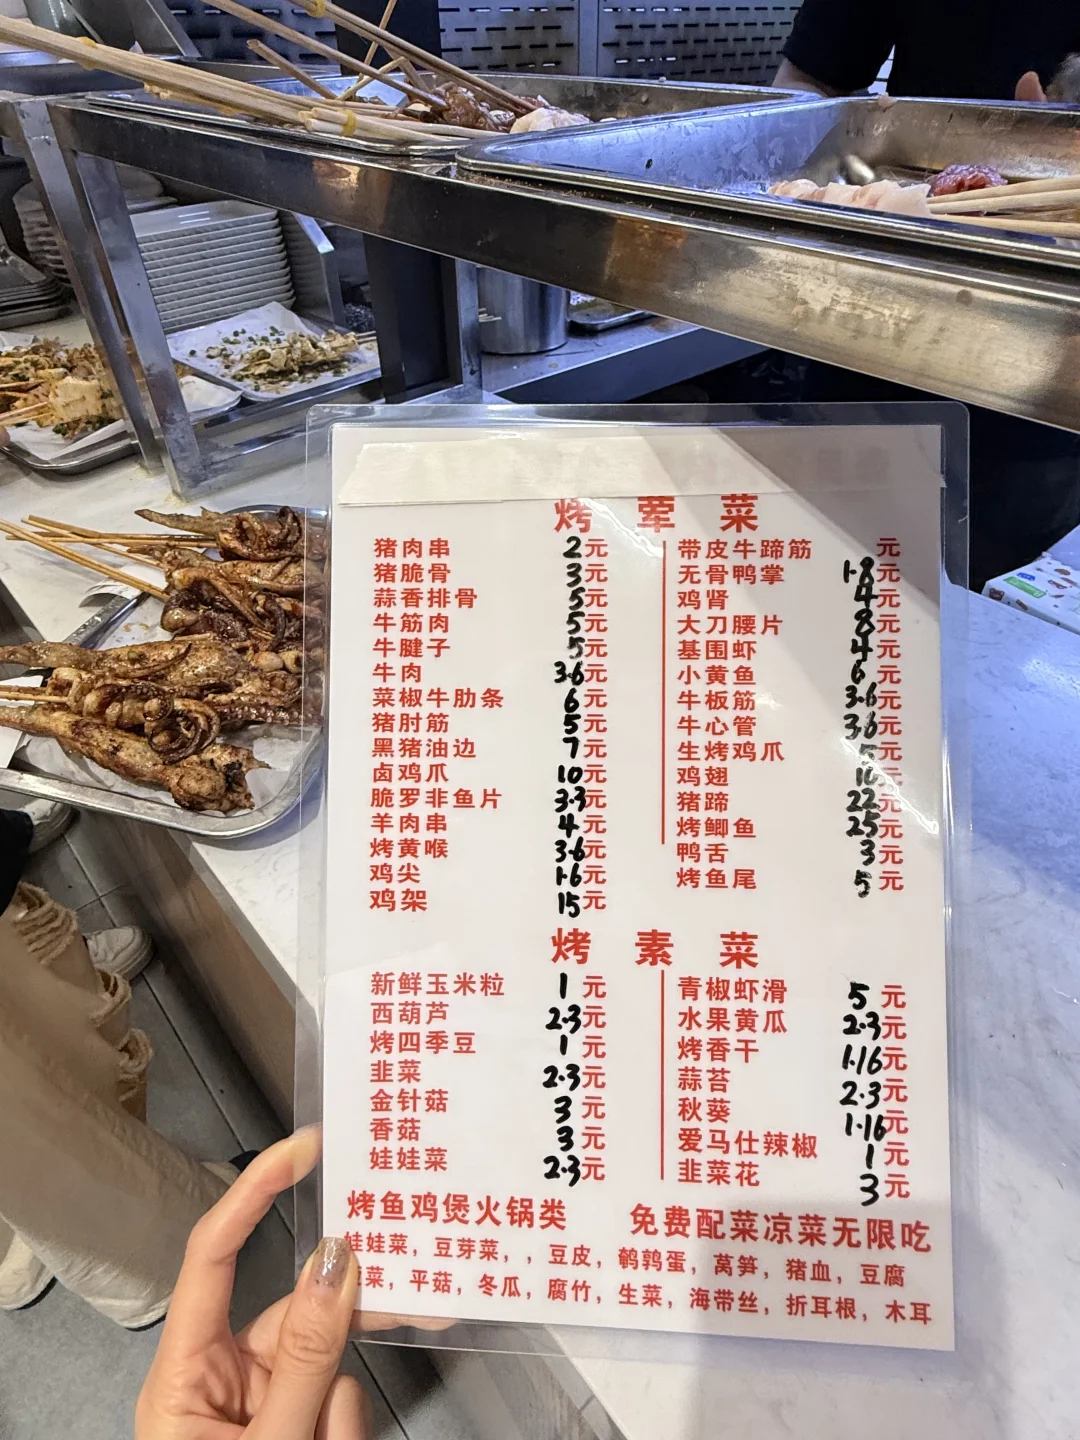 烤 荤 菜
猪肉串 2元
猪脆骨 3元
蒜香排骨 5元
牛筋肉 5元
牛腱子 5元
牛肉 3.6元
菜椒牛肋条 6元
猪肘筋 5元
黑猪油边 7元
卤鸡爪 10元
脆罗非鱼片 3.3元
羊肉串 4元
烤黄喉 3.6元
鸡尖 1.6元
鸡架 15元
带皮牛蹄筋 元
无骨鸭掌 1.8元
鸡肾 4元
大刀腰片 8元
基围虾 4元
小黄鱼 6元
牛板筋 3.6元
牛心管 3.6元
生烤鸡爪 5元
鸡翅 10元
猪蹄 22元
烤鲫鱼 25元
鸭舌 3元
烤鱼尾 5元
烤 素 菜
新鲜玉米粒 1元
西葫芦 2.3元
烤四季豆 1元
韭菜 2.3元
金针菇 3元
香菇 3元
娃娃菜 2.3元
青椒虾滑 5元
水果黄瓜 2.3元
烤香干 1.16元
蒜苔 2.3元
秋葵 1.16元
爱马仕辣椒 1元
韭菜花 3元
烤鱼鸡煲火锅类 免费配菜凉菜无限吃
娃娃菜，豆芽菜，，豆皮，鹌鹑蛋，莴笋，猪血，豆腐
菜，平菇，冬瓜，腐竹，生菜，海带丝，折耳根，木耳